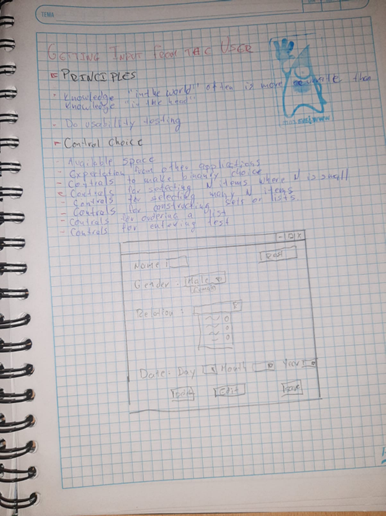 GETTING INPUT FROM THE USER
PRINCIPLES
- Knowledge "in the world" often is more than
Knowledge "in the head"
- Do usability testing
Control Choice
- Available Space
- Expectation from other applications
- Controls to make binary choice
- Controls for selecting N items where N is small
- Controls for selecting many N items
- Controls for constructing sets or lists
- Controls for ordering a list
- Controls for entering text
Name:
Gender: Male
Date: Day Month Year
Edit